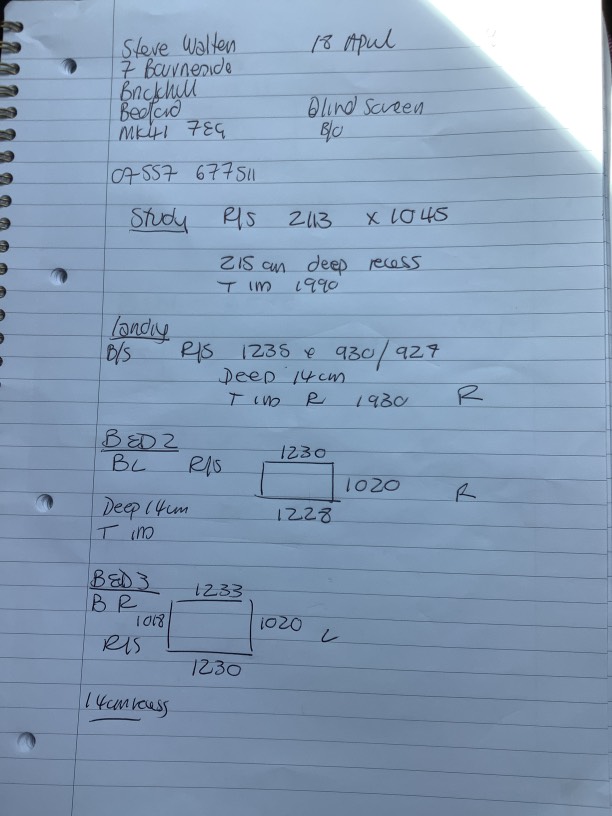 Steve Walten 18 April
7 Bourneside
Brickhill
Bedford Blind Screen
MK41 7EG B/O
07557 677511
Study R/S 2113 x 1045
215 cm deep recess
T 1990
Landing
B/S R/S 1235 x 930/927
Deep 14cm
T R 1930 R
BED 2
BL R/S 1230
1020 R
1228
Deep 14cm
T
BED 3 1233
B R
1018 1020 L
R/S
1230
14cm recess